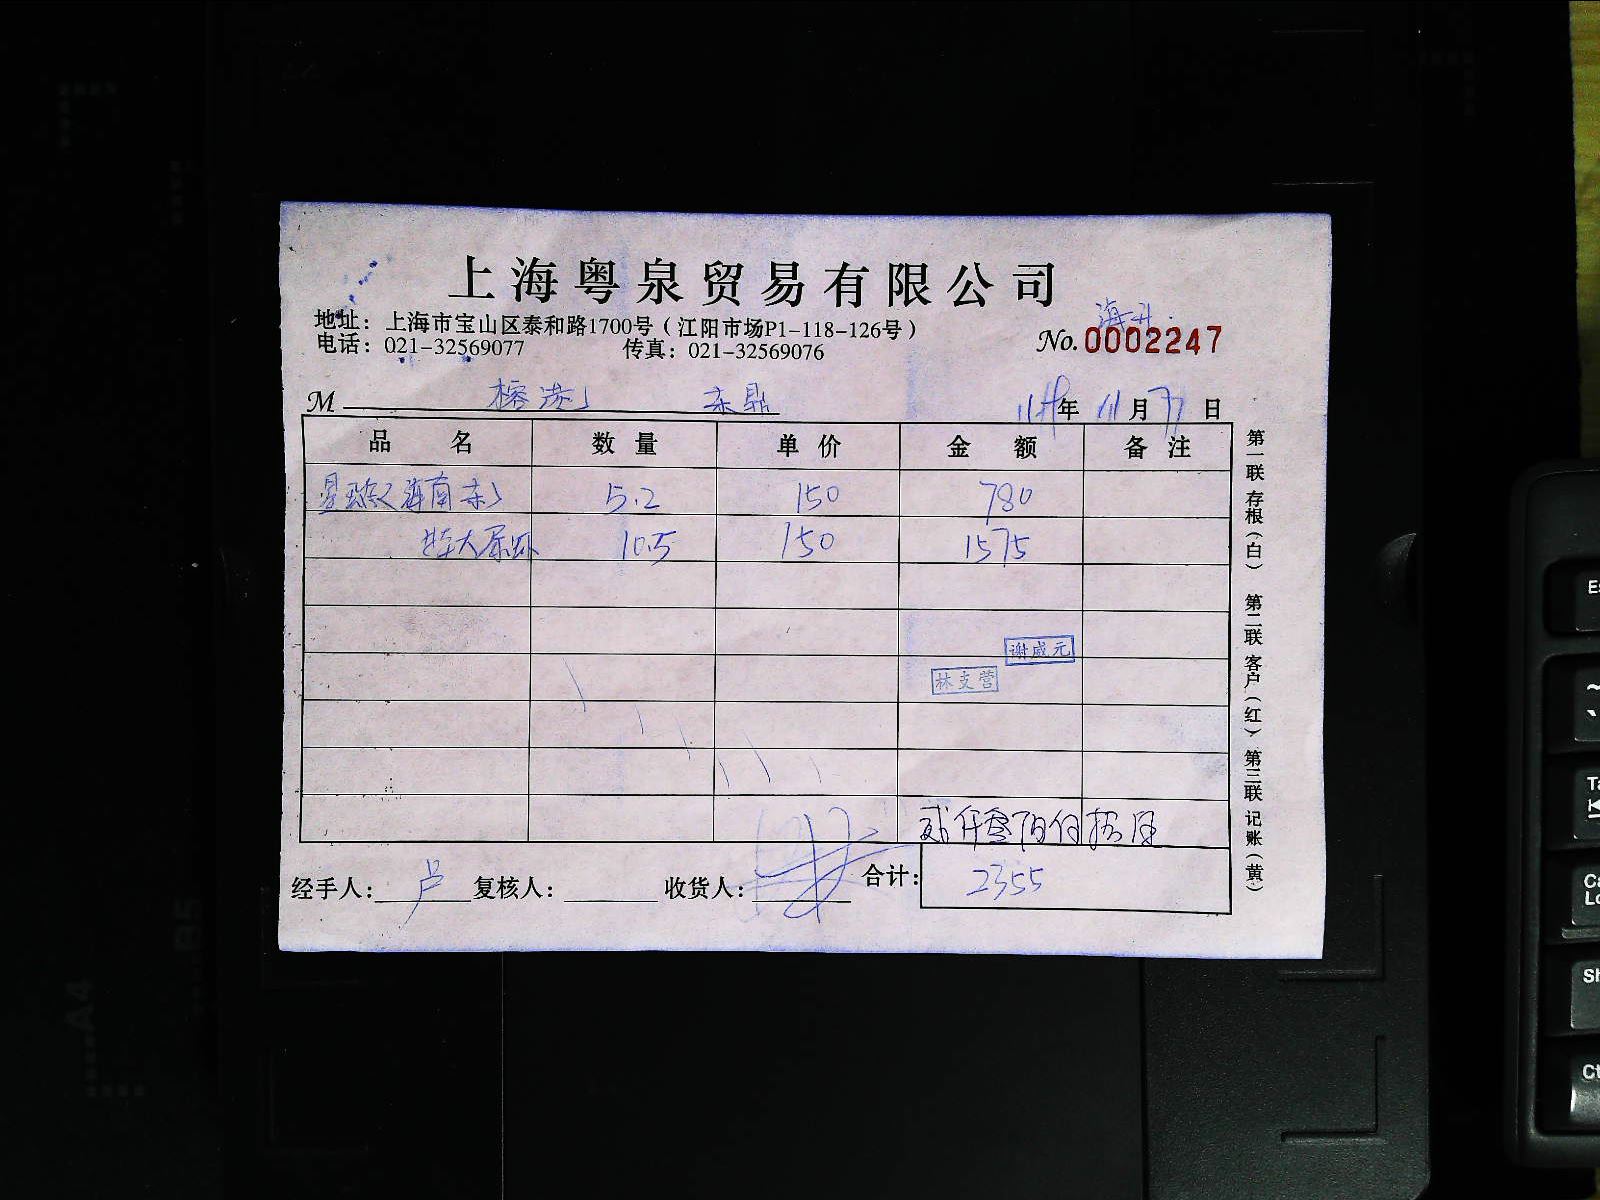 上海粤泉贸易有限公司
地址：上海市宝山区泰和路1700号（江阳市场P1-118-126号）
电话：021-32569077 传真：021-32569076
No.0002247
M 东鼎 年 月 日
品名 数量 单价 金额 备注
5.2 150 780
特大 10.5 150 1575
谢威元
林支营
贰仟叁佰伍拾
经手人：卢 复核人： 收货人： 合计：2355
第一联 存根（白） 第二联 客户（红） 第三联 记账（黄）
A4
B5